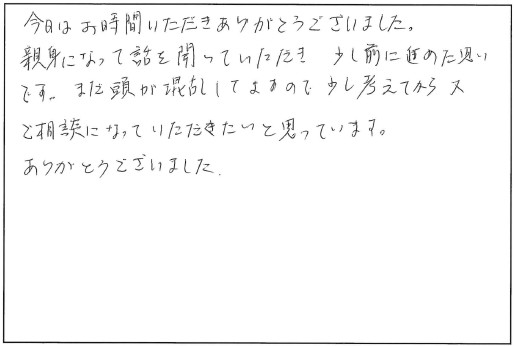 今日はお時間いただきありがとうございました。
親身になって話を聞いていただき 少し前に進めた思い
です。まだ頭が混乱してますので少し考えてから又
ご相談になっていただきたいと思っています。
ありがとうございました.